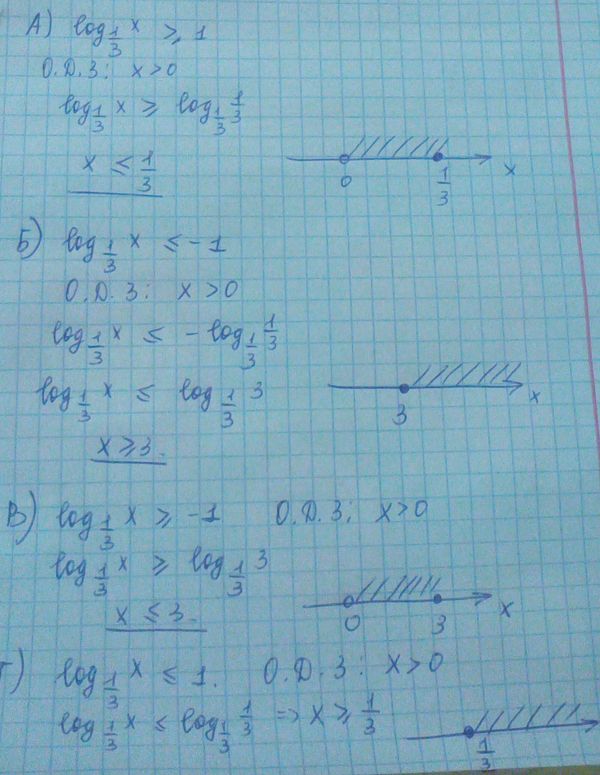 А) log_{1/3} x ⩾ 1
О.Д.З: x > 0
log_{1/3} x ⩾ log_{1/3} 1/3
x ≤ 1/3
0 1/3 x
Б) log_{1/3} x ≤ -1
О.Д.З: x > 0
log_{1/3} x ≤ - log_{1/3} 1/3
log_{1/3} x ≤ log_{1/3} 3
3 x
x ⩾ 3.
В) log_{1/3} x ⩾ -1 О.Д.З: x > 0
log_{1/3} x ⩾ log_{1/3} 3
x ≤ 3.
0 3 x
Г) log_{1/3} x ≤ 1. О.Д.З: x > 0
log_{1/3} x ≤ log_{1/3} 1/3 => x ⩾ 1/3
1/3